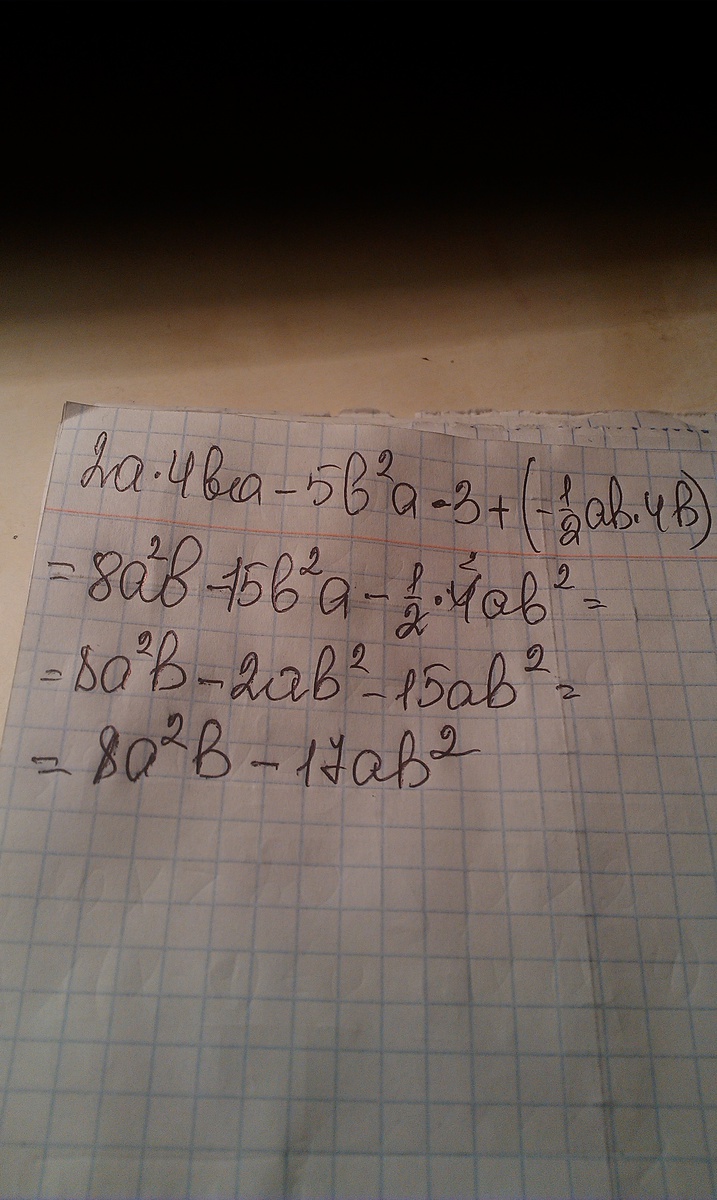 2a·4ba-5b²a·3+(-1/2ab·4b)
=8a²b-15b²a-1/2·4²ab²=
=8a²b-2ab²-15ab²=
=8a²b-17ab²